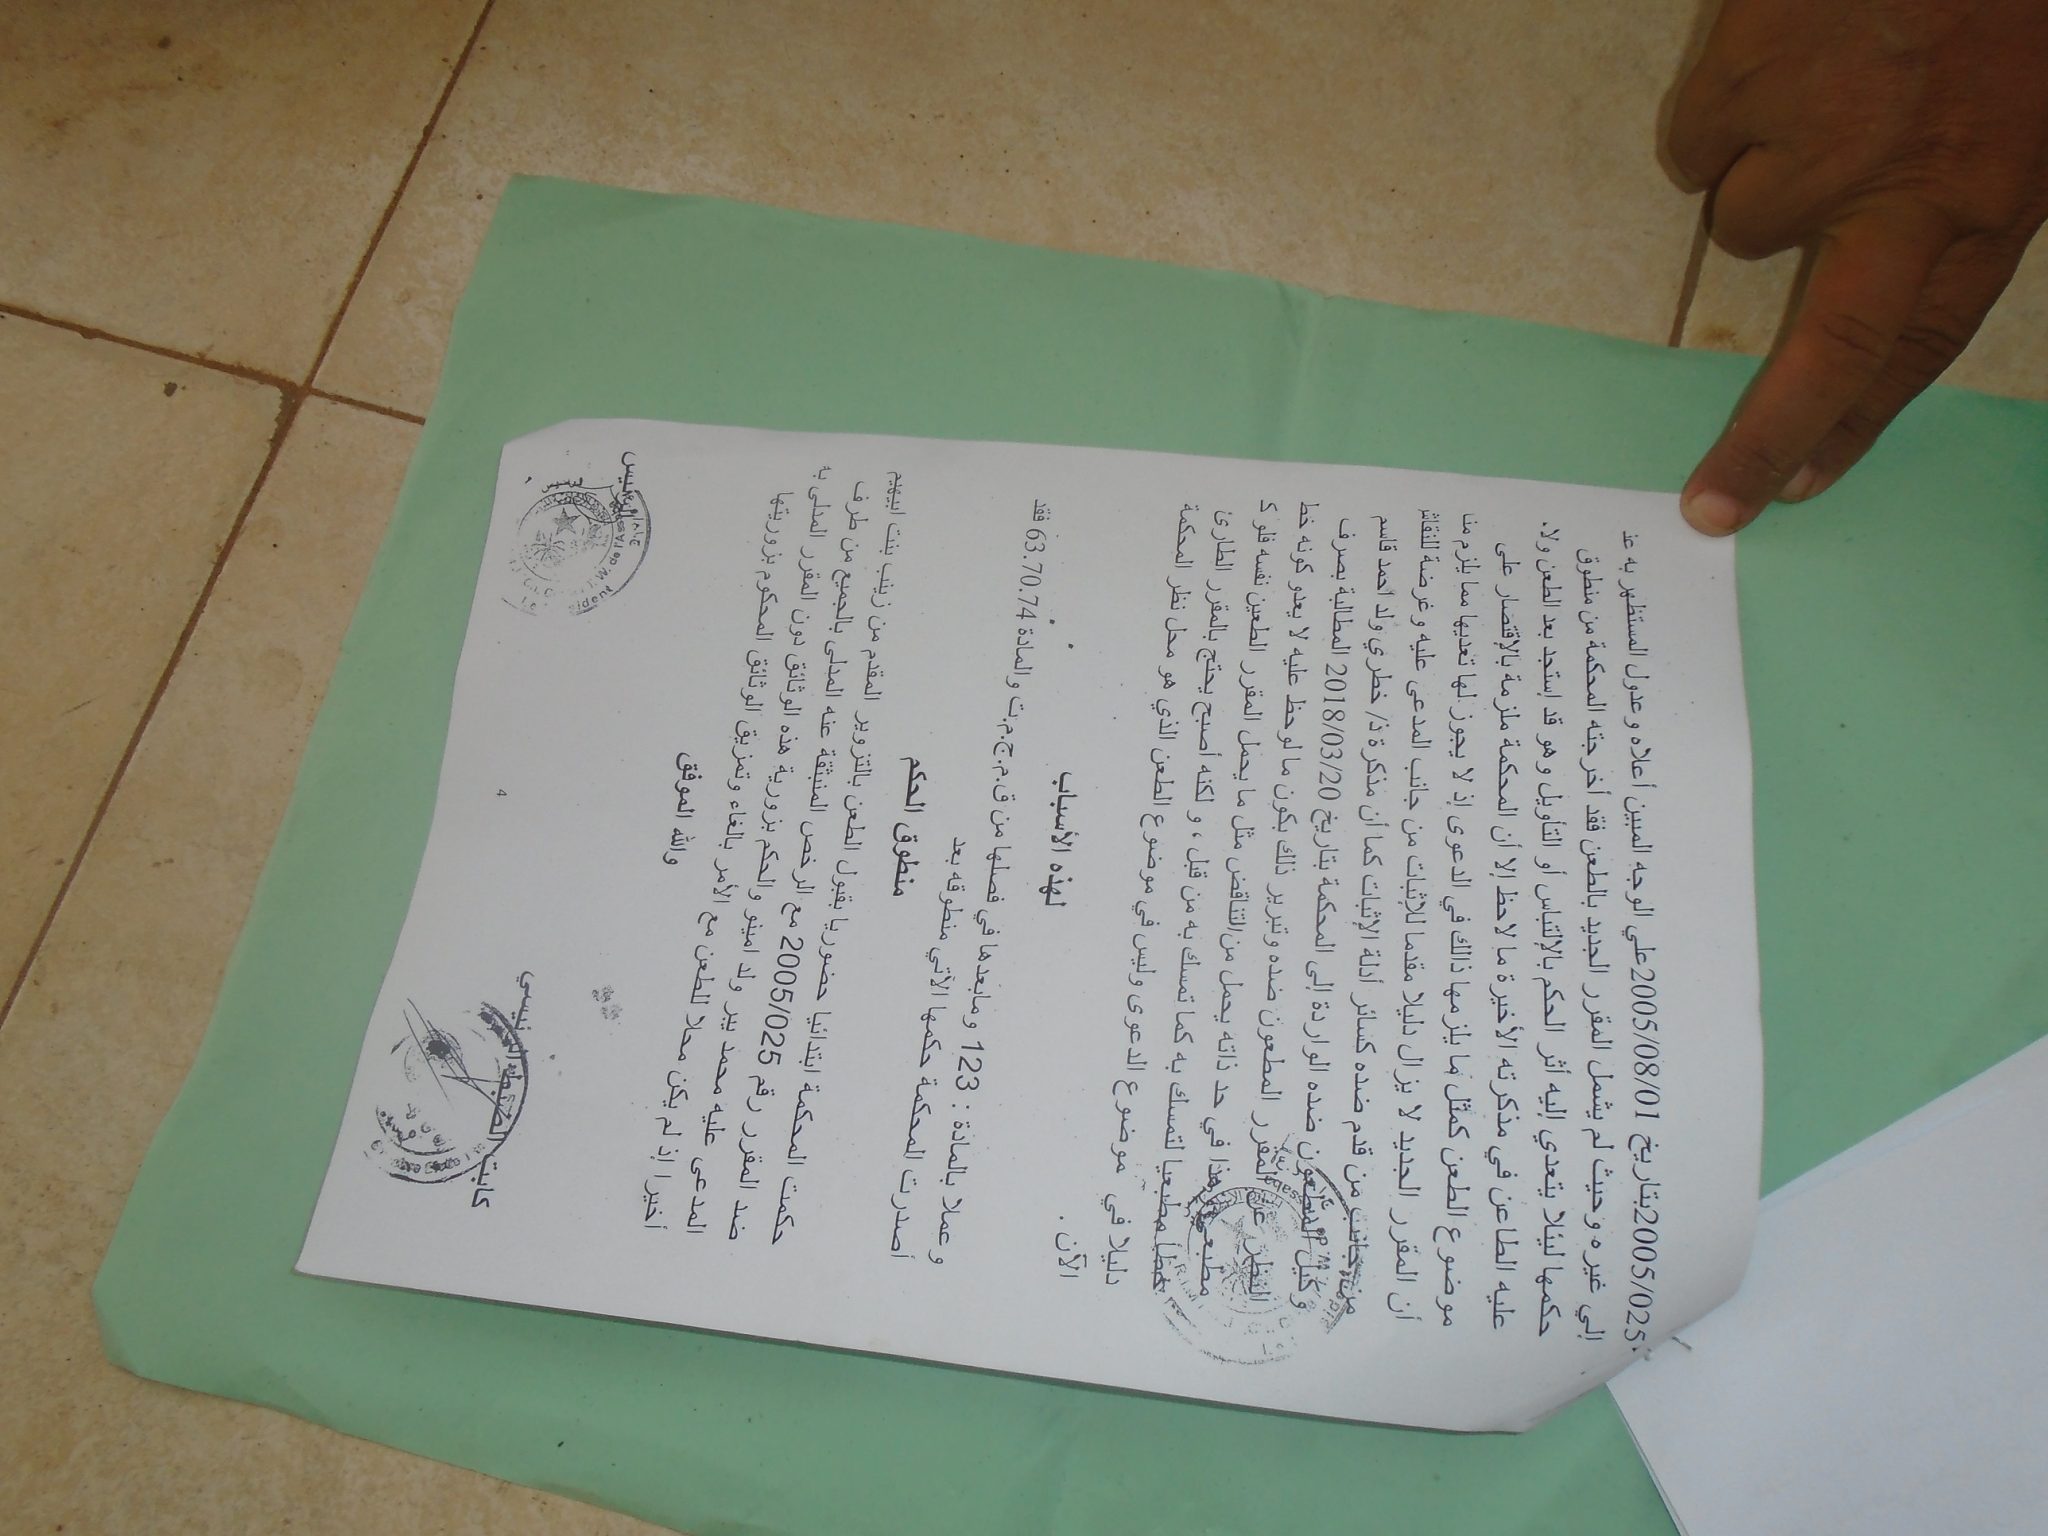 2005/025 بتاريخ 2005/08/01 علي الوجه المبين أعلاه وعدول المستظهر به عن
إلي غيره وحيث لم يشمل المقرر الجديد بالطعن فقد أخرجته المحكمة من منطوق
حكمها ليئلا يتعدي إليه أثر الحكم بالإلتباس أو التأويل وهو قد إستجد بعد الطعن ولا.
عليه الطاعن في مذكرته الأخيرة ما لاحظ إلا أن المحكمة ملزمة بالإقتصار على
موضوع الطعن كمثل ما يلزمها ذالك في الدعوى إذ لا يجوز لها تعديها مما يلزم منا
أن المقرر الجديد لا يزال دليلا مقدما للإثبات من جانب المدعى عليه وعرضة للنقاش
من جانب من قدم ضده كسائر أدلة الإثبات كما أن مذكرة ذ/ خطري ولد احمد قاسم
وكيل المطعون ضده الواردة إلى المحكمة بتاريخ 2018/03/20 المطالبة بصرف
النظر عن المقرر المطعون ضده وتبرير ذلك بكون ما لوحظ عليه لا يعدو كونه خط
مطبعي هذا في حد ذاته يحمل من التناقض مثل ما يحمل المقرر الطعين نفسه فلو ك
خطأ مطبعيا لتمسك به كما تمسك به من قبل ، و لكنه أصبح يحتج بالمقرر الطارئ
دليلا في موضوع الدعوى وليس في موضوع الطعن الذي هو محل نظر المحكمة
الآن .
لهذه الأسباب
وعملا بالمادة : 123 ومابعدها في فصلها من ق.م.ج.م.ت والمادة 63.70.74 فقد
أصدرت المحكمة حكمها الآتي منطوقه بعد
منطوق الحكم
حكمت المحكمة ابتدائيا حضوريا بقبول الطعن بالتزوير المقدم من زينب بنت ابيهيم
ضد المقرر رقم 2005/025 مع الرخص المنبثقة عنه المدلى بالجميع من طرف
المدعى عليه محمد يبر ولد امينو والحكم بزورية هذه الوثائق دون المقرر المدلى به
أخيرا إذ لم يكن محلا للطعن مع الأمر بالغاء وتمزيق الوثائق المحكوم بزوريتها
والله الموفق
كاتب الضبط الرئيسي
الرئيس
4